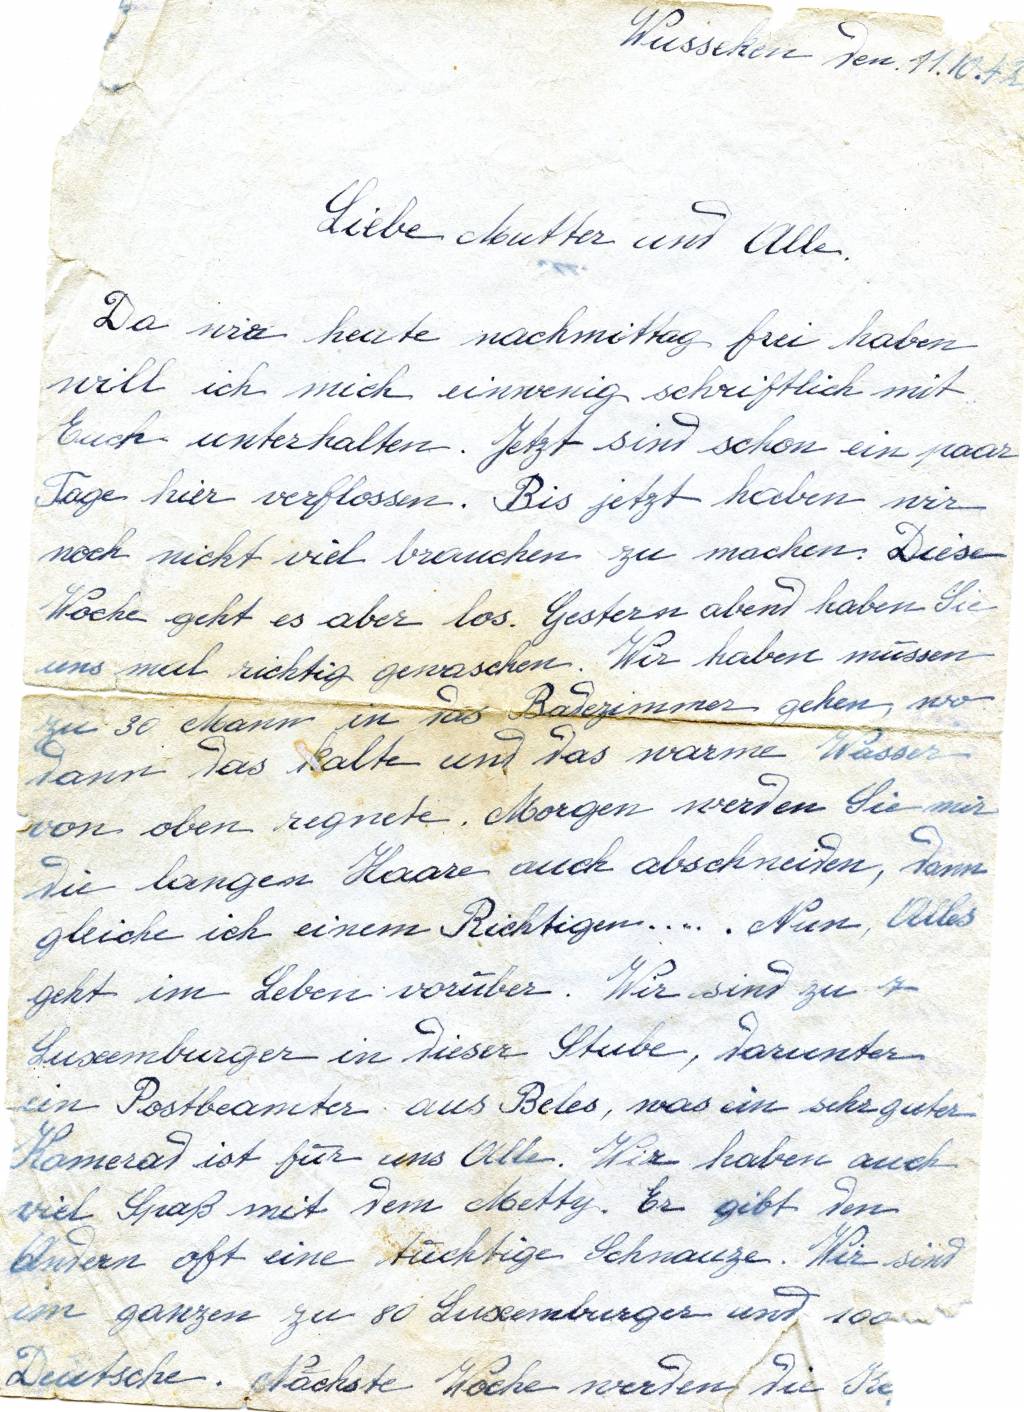 Wusseken den. 11.10.42
Liebe Mutter und Alle.
Da wir heute nachmittag frei haben
will ich mich einwenig schriftlich mit
Euch unterhalten. Jetzt sind schon ein paar
Tage hier verflossen. Bis jetzt haben wir
noch nicht viel brauchen zu machen. Diese
Woche geht es aber los. Gestern abend haben Sie
uns mal richtig gewaschen. Wir haben müssen
zu 30 Mann in das Badezimmer gehen, wo
dann das kalte und das warme Wasser
von oben regnete. Morgen werden Sie mir
die langen Haare auch abschneiden, dann
gleiche ich einem Richtigen..... Nun, Alles
geht im Leben vorüber. Wir sind zu 7
Luxemburger in dieser Stube, darunter
ein Postbeamter aus Beles, was ein sehr guter
Kamerad ist für uns Alle. Wir haben auch
viel Spaß mit dem Metty. Er gibt den
Andern oft eine tüchtige Schnauze. Wir sind
im ganzen zu 80 Luxemburger und 100
Deutsche. Nächste Woche werden die